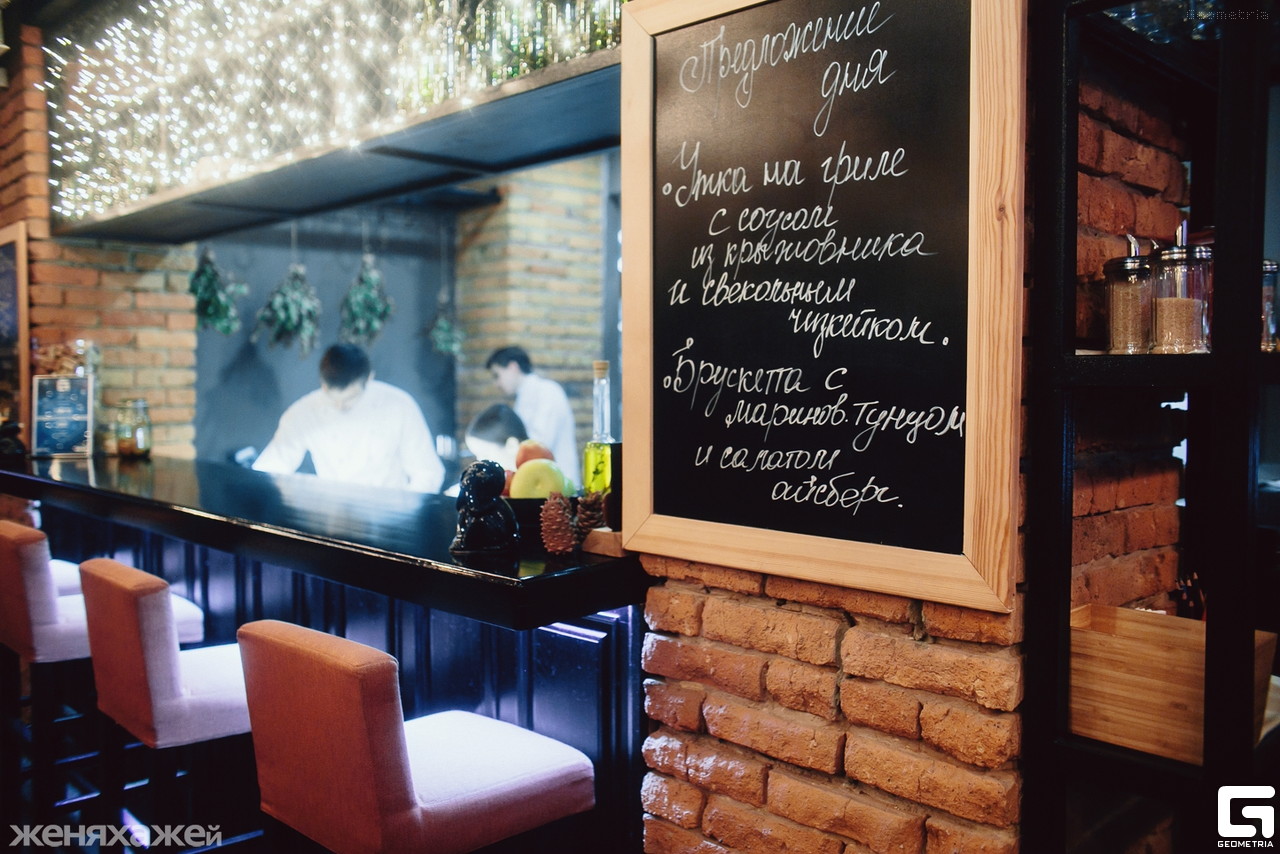 Geometria
Предложение
дня
• Утка на гриле
с соусом
из крыжовника
и свекольным
чизкейком.
• Брускетта с
маринов. тунцом
и салатом
айсберг.
женяхажей
GEOMETRIA